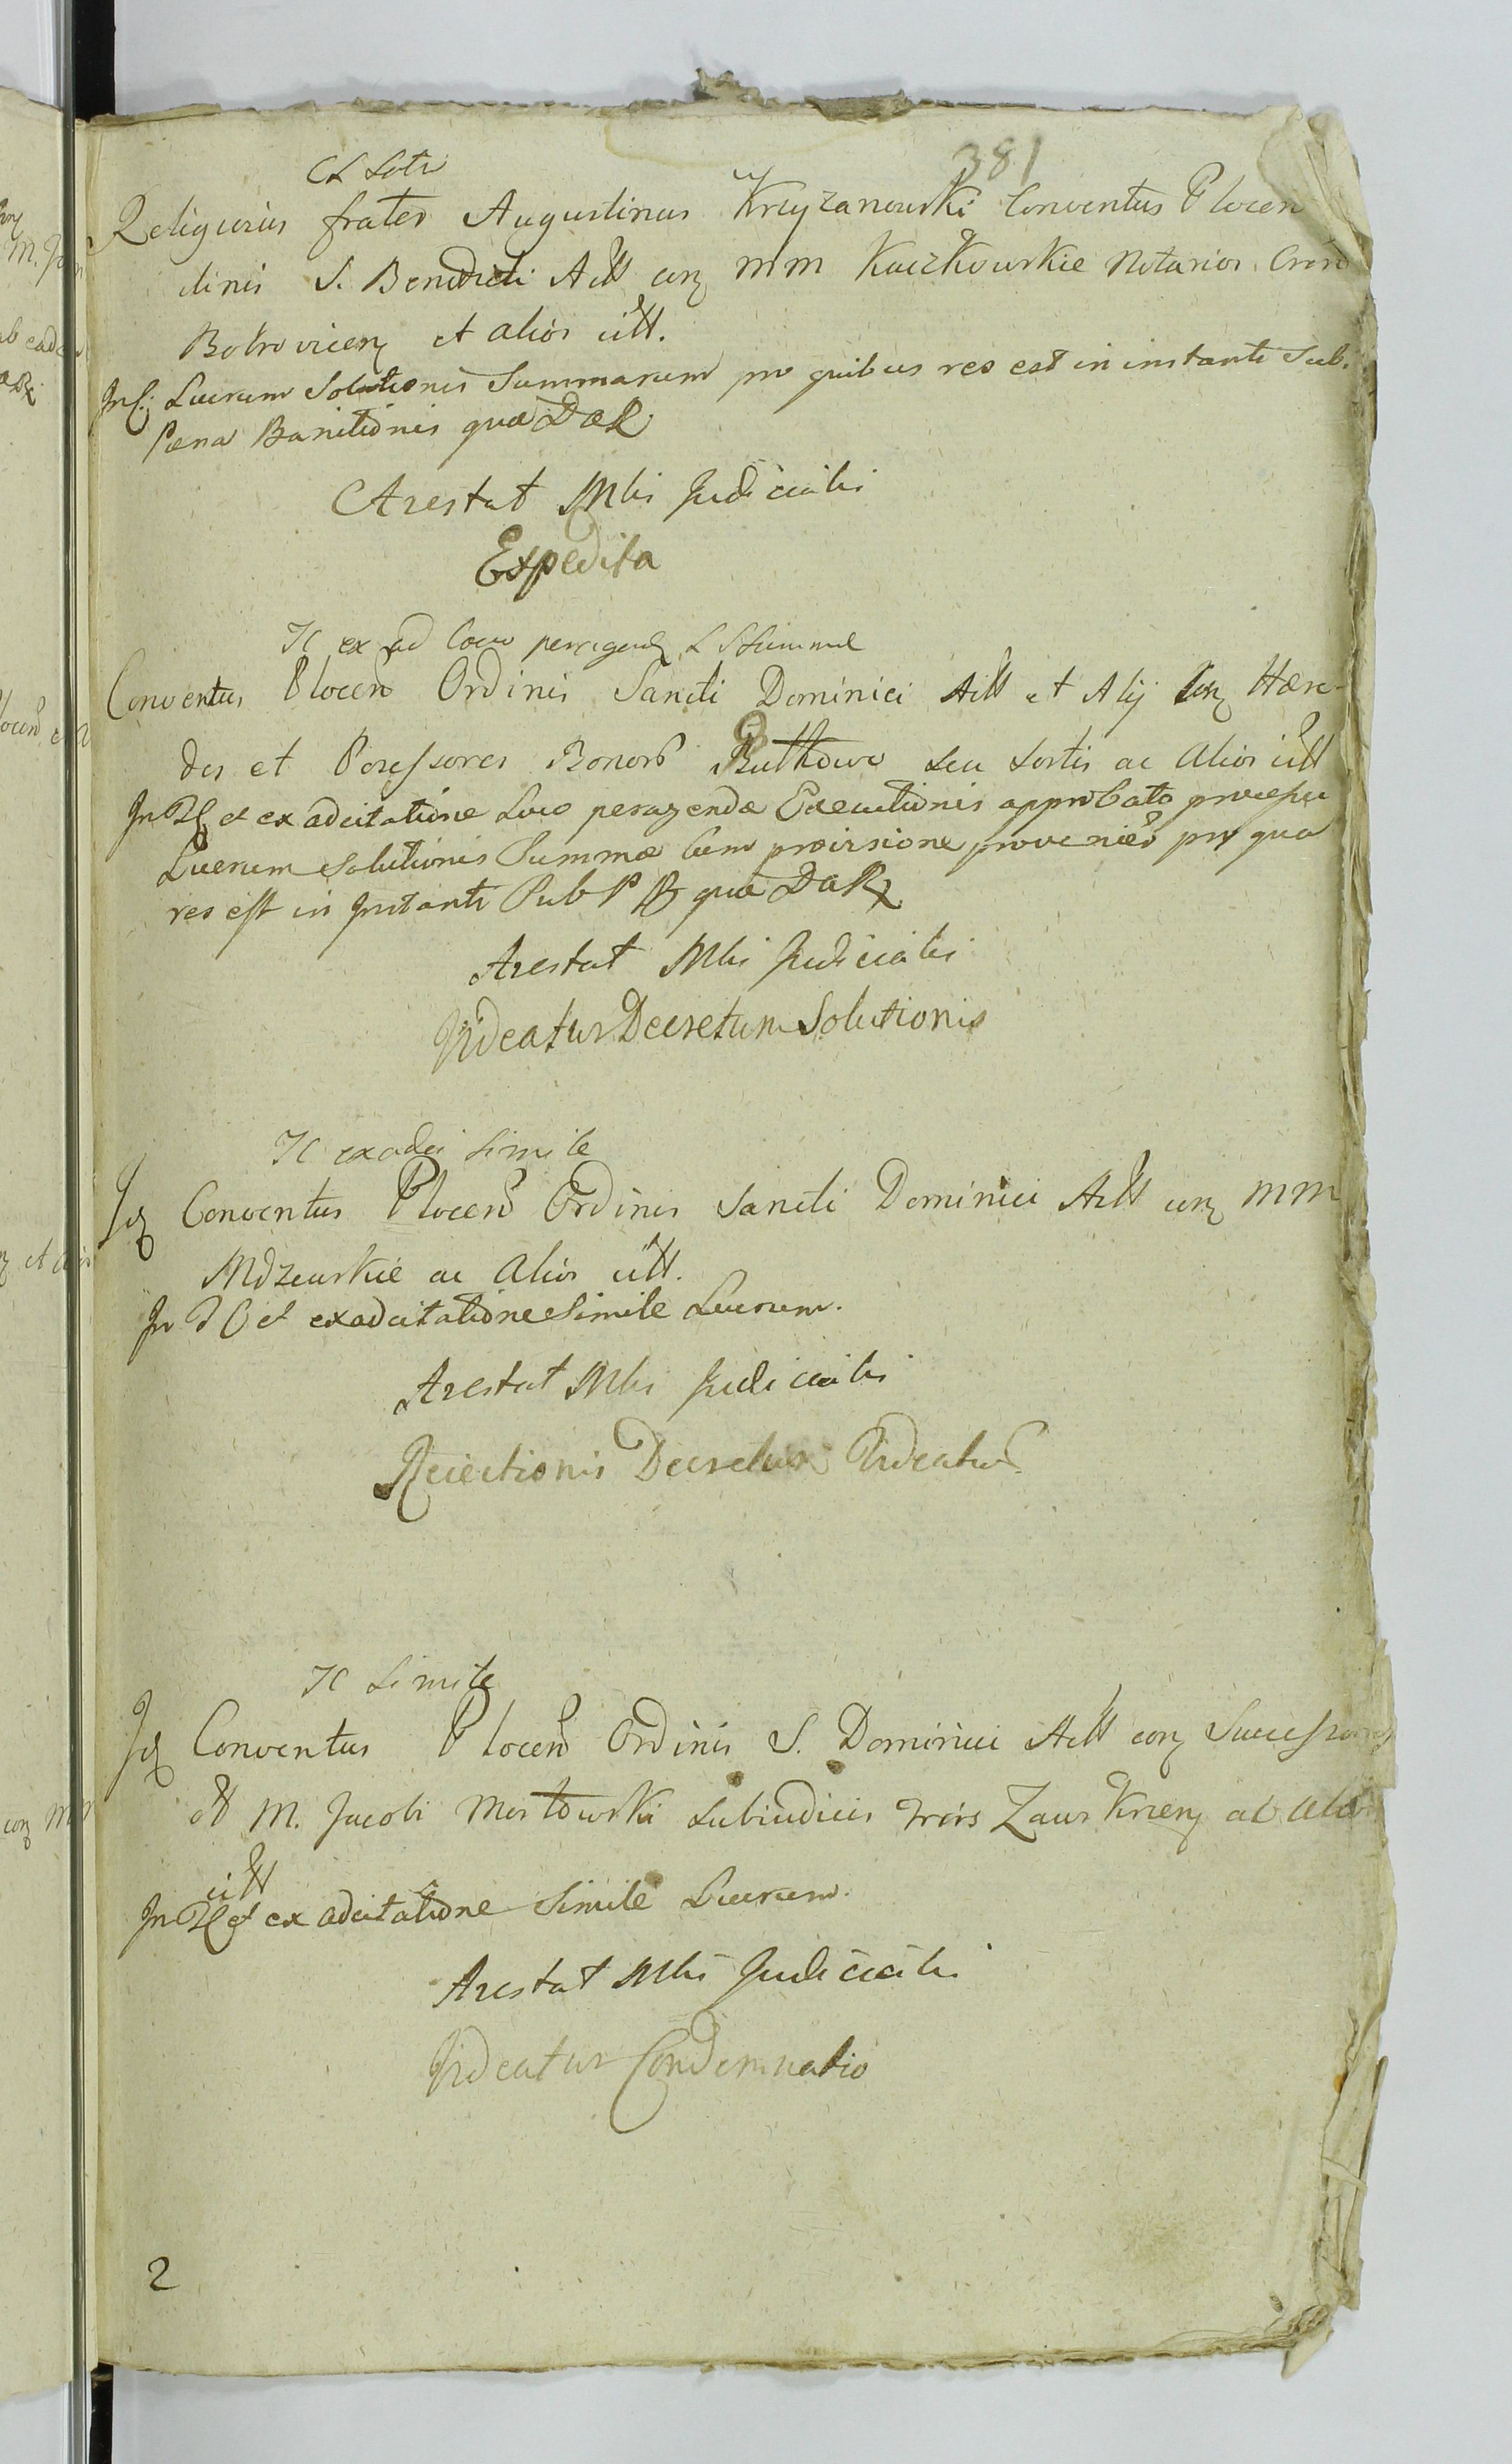 381
Religiosus frater Augustinus Krzyzanowski Conventus Plocen
dinis S. Benedicti Act con MM Kaczkowskie Notarios
et alios citt.
Lucrum Solutionis Summarum pro quibus res est in instanti Sub
Pæna Banitionis qua DaR
Arestat Mlis Judicialis
Expedita
Conventus Plocen Ordinis Sancti Dominici Act et Alij con Hære-
des et Possessores Bonor Rutkowo seu Sortis ac Alios citt
et ex adcitatione Loco peragendæ Executionis approbato processu
Lucrum Solutionis Summæ cum provisione provenien pro qua
res est in Instanti Sub P B qua DaR
Arestat Mlis Judicialis
Videatur Decretum Solutionis
simile
Conventus Plocen Ordinis Sancti Dominici Act con MM
Mdzewskie ac Alios citt.
In et ex adcitatione Simile Lucrum.
Arestat Mlis Judicialis
Reiectionis Decretum Videatur
Simile
Conventus Plocen Ordinis S. Dominici Act con Successores
M. Jacobi Mostowski Subiudicis Zawskrzen ac Alios
citt
In et ex adcitatione Simile Lucrum.
Arestat Mlis Judicialis
Videatur Condemnatio
2